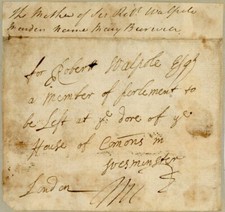 The Mother of Sir Robt Walpole
Maiden Name Mary Burwell
for Robert Walpole Esqr
a member of parlement to
be Left at ye dore of ye
House of Comons in
Wesminster
London